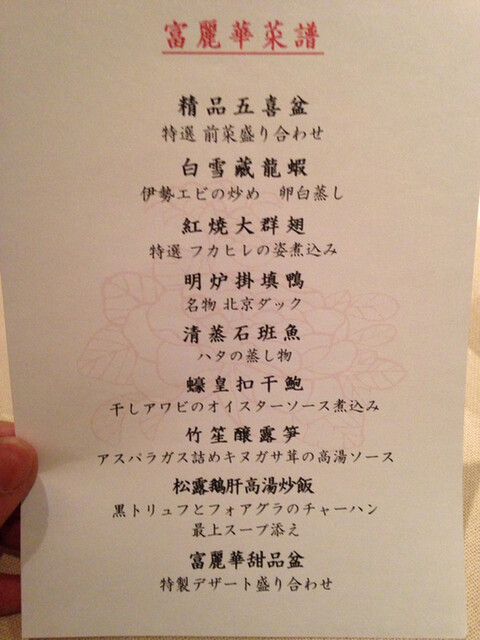 富麗華菜譜
精品五喜盆
特選 前菜盛り合わせ
白雪蔵龍蝦
伊勢エビの炒め 卵白蒸し
紅焼大群翅
特選 フカヒレの姿煮込み
明炉掛填鴨
名物 北京ダック
清蒸石班魚
ハタの蒸し物
蠔皇扣干鮑
干しアワビのオイスターソース煮込み
竹笙釀露笋
アスパラガス詰めキヌガサ茸の高湯ソース
松露鵝肝高湯炒飯
黒トリュフとフォアグラのチャーハン
最上スープ添え
富麗華甜品盆
特製デザート盛り合わせ